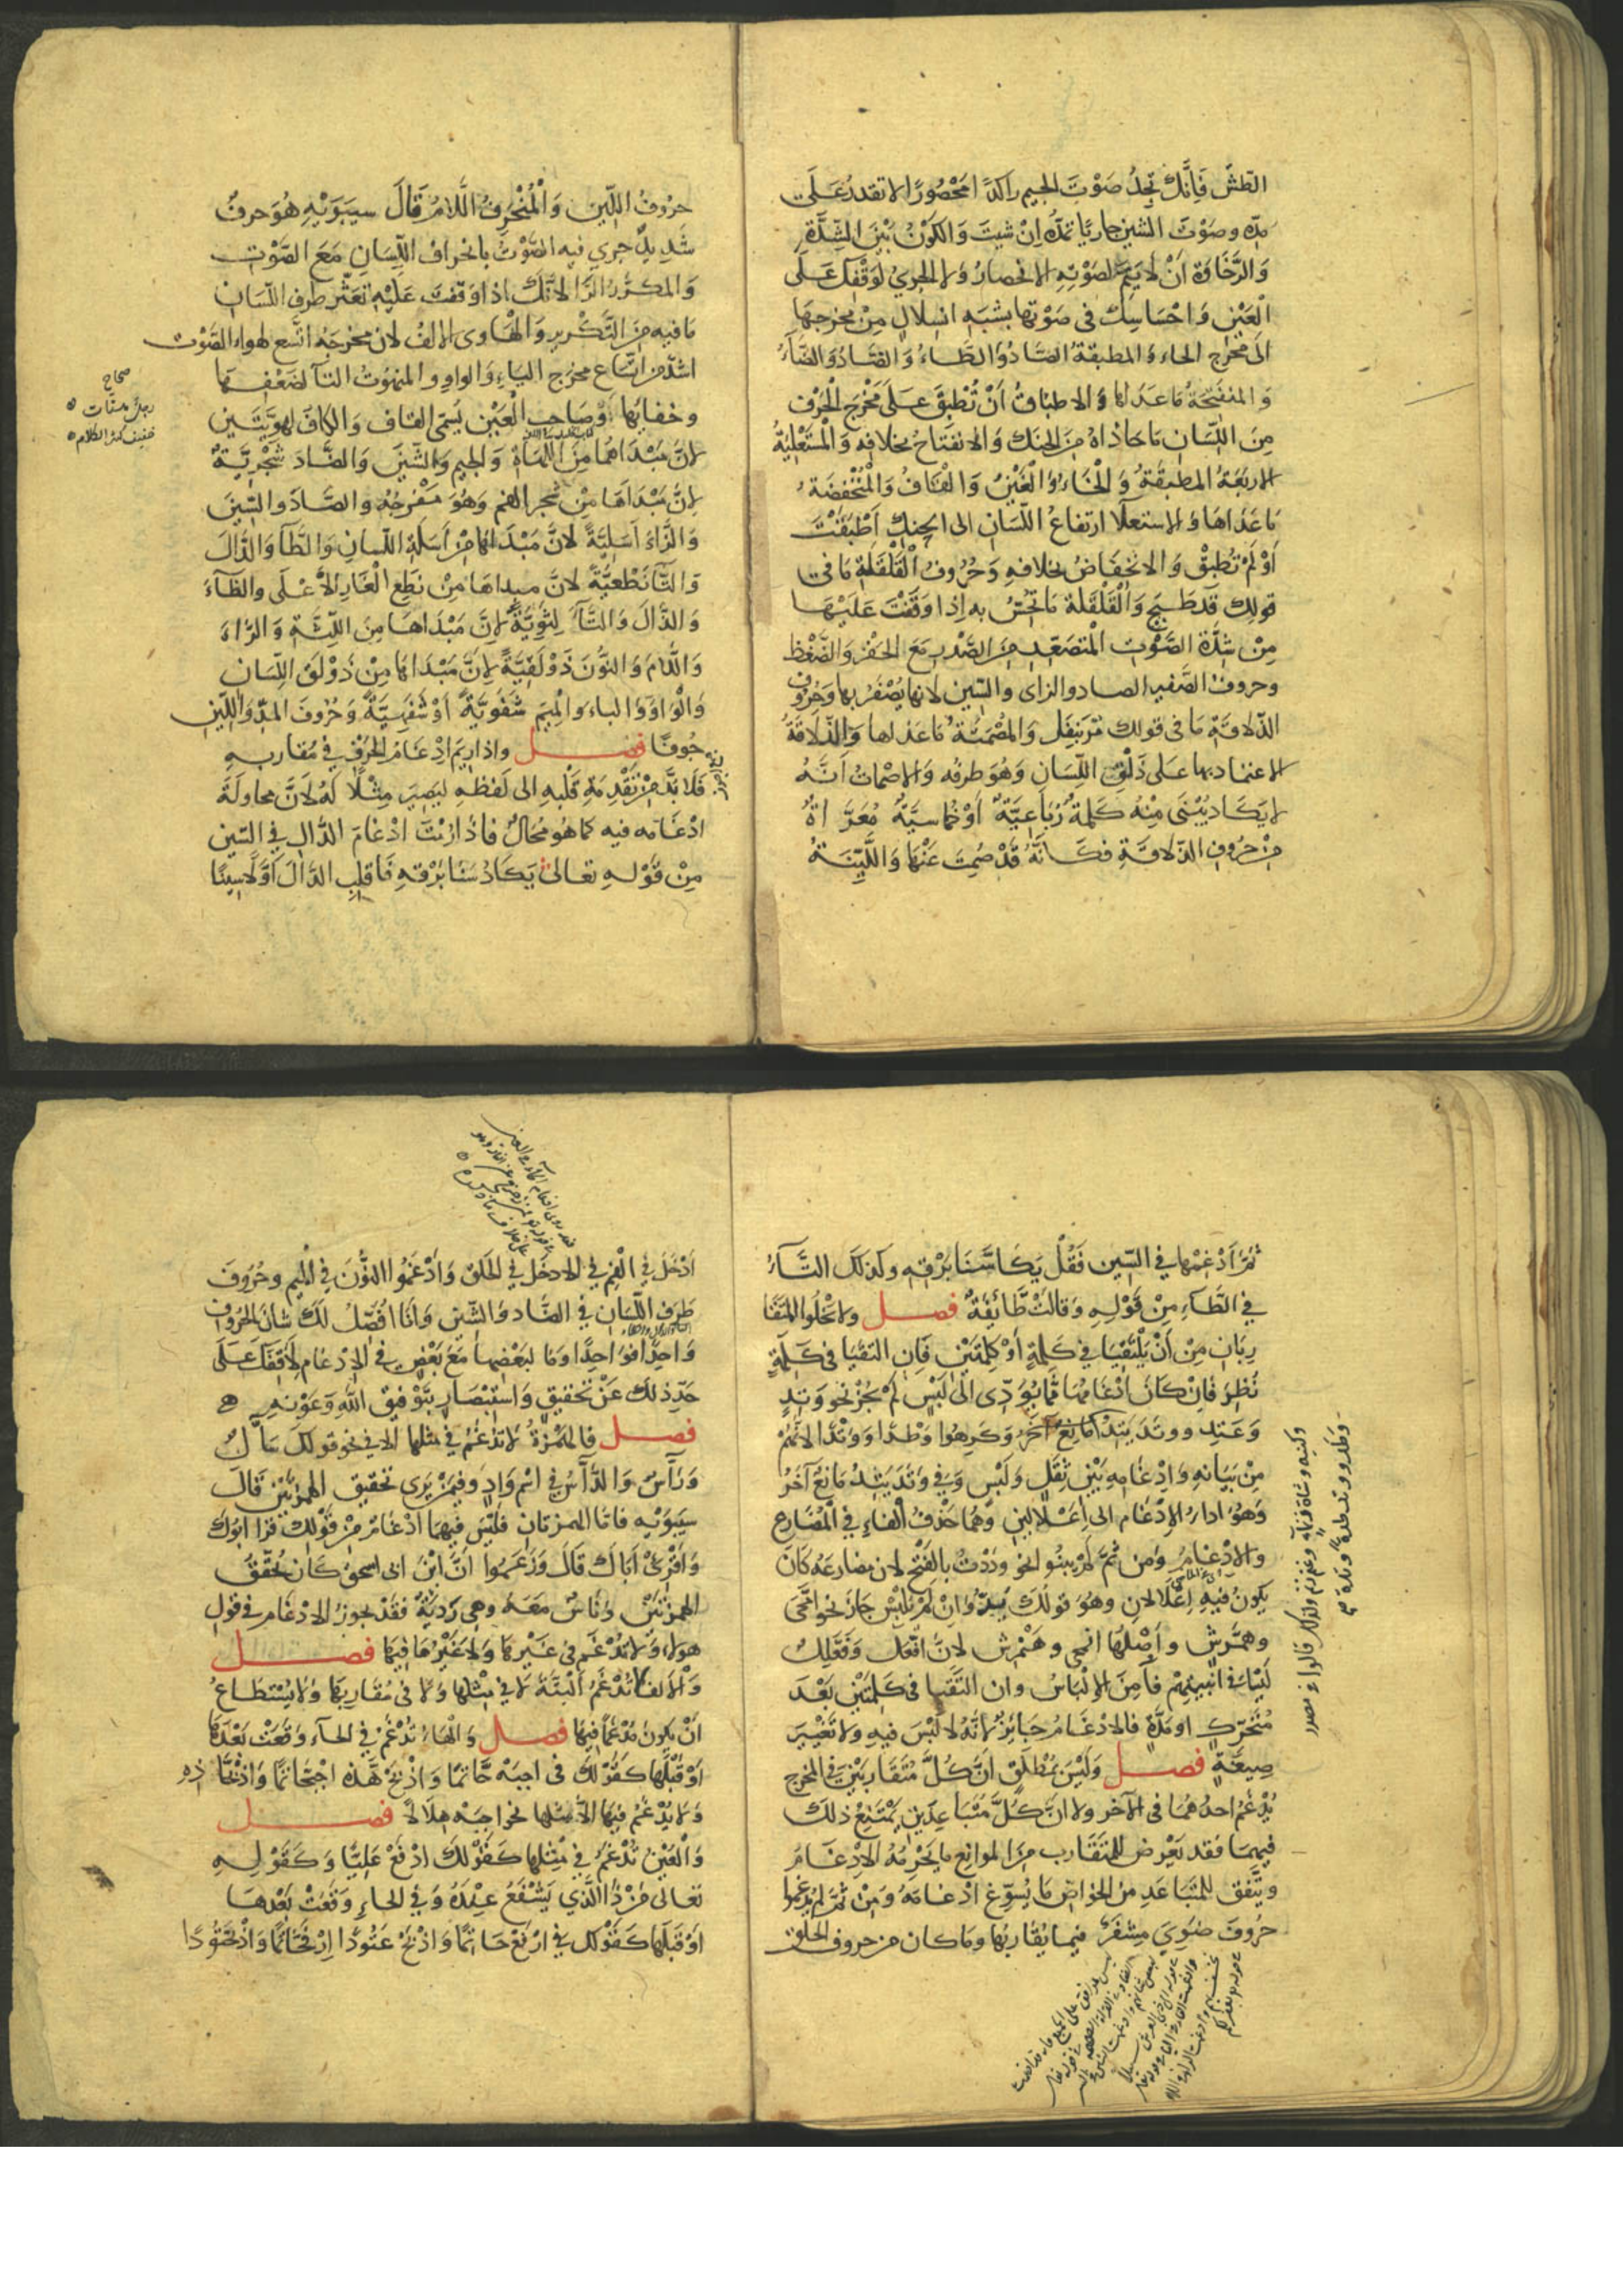 الطش فَاِنَّكَ تَجِدُ صَوْتَ الجيم راكدًا مَحْصُورًا لا تقدرُ عَلَى
مدّه وصَوْتَ الشين جاريًا تمدّه اِنْ شيتَ وَالكَوْنُ بَيْنَ الشِّدَّةِ
وَالرَّخَاوَة اَنْ لا يَتِمَّ لصَوْتِهِ الانحصارُ وَلا الجرىُ لوَقْفِكَ عَلَى
الْعَيْنِ وَاحْسَاسِكَ فى صَوْتها بشبَه انسِلالٍ مِنْ مخرجهَا
الى مَخْرَج الحاء وَالمطبقةُ الضَّادُ وَالطَّاءُ وَالصَّادُ وَالظَّاءُ
وَالمنفَتِحَةُ مَاعَدَاهَا وَالاطبَاقُ اَنْ تُطْبِقَ عَلَى مَخْرَج الْحَرْف
مِنَ اللّسَان مَا حَاذاهُ مِنَ الحَنَك وَالانفِتَاحُ بخلافهِ وَالْمُسْتَعْلِيَةُ
الاربَعَةُ المطبقَةُ وَالْخَاءُ وَالْغَيْنُ وَالْقَافُ وَالْمُنْخَفِضَةُ
مَاعَدَاهَا وَالاستعلا ارتفاعُ اللّسَان الى الحنك اَطْبَقْتَ
اَوْ لَمْ تُطبِقْ وَالانخفَاضُ بخلافهِ وَحُرُوفُ الْقَلْقَلَةِ مَا فى
قولك قَدْ طَبَجَ وَالْقَلْقَلَة مَا تُحِسُّ بهِ اِذا وَقَفْتَ عَلَيْهَا
مِنْ شِدَّة الصَّوْتِ الْمتصَعِّد مِنَ الصَّدْر مَعَ الحَفْز وَالضَّغْط
وحروف الصَّفير الصاد والزاى والسّين لانها يُصْفَرُ بها وَحُرُوف
الذّلاقة مَا فى قولك مُرْ بِنَفَلٍ وَالمُصْمَتَةُ مَاعَدَاها وَالذّلاقَةُ
الاعتمَاد بها عَلى ذَلْقِ اللّسَانِ وَهُوَ طرفُه وَالاصْمَاتُ اَنَّهُ
لا يَكَادُ يُبْنَى مِنْهُ كَلِمةٌ رُبَاعِيَّةٌ اَوْ خُماسيَّةٌ مُعَرَّاةٌ
مِنْ حُرُوفِ الذّلاقَةِ فكَانَّهُ قَدْ صُمِتَ عَنْهَا وَاللَّيِّنَةُ
حرُوفُ اللّين وَالْمُنْحَرِفُ اللَّامُ قَالَ سِيبَوَيْهِ هُوَ حَرفٌ
شَدِيدٌ جرى فيه الصَّوْتُ بانحراف اللّسَانِ مَعَ الصَّوْت
وَالمكرَّرُ الرَّا لانَّكَ اذا وَقفتَ عَلَيْهِ تعَثَّر طرَفُ اللّسَان
مَا فيهِ مِنَ التَّكْرير وَالْهَاوى الالفُ لان مخرجَهُ اتَّسع لهواء الصَّوْت
اشدّ من اتّسَاع مخرج اليَاءِ وَالواوِ والمهتُوتُ التآ لضَعْفِهَا
وخفايها وَصَاحِبُ الْعَيْن يُسَمّى القاف وَالكافَ لهَوِيَّتَيْن
لانَّ مَبْدَاهُمَا مِنَ اللّهَاة وَالجيم وَالشّينَ وَالضَّادَ شَجْريَّةً
لانَّ مَبْدَاهَا مِنْ شجر الفَم وَهُوَ مَفْرَجُهُ والصَّادَ والسّينَ
وَالزّاءَ اَسَلِيَّةً لانَّ مَبْدَاهَا مِنْ اَسَلَةِ اللّسانِ وَالطَّآ وَالدَّالَ
وَالتّآ نِطْعيَّةً لانَّ مبداهَا مِنْ نِطَعِ الْغَارِ الاَعْلَى والظآءَ
وَالذَّالَ وَالثَّآءَ لِثَوِيَّةً لانَّ مَبْدَاهَا مِنَ اللِّثَةِ وَالرّاءَ
وَاللّامَ وَالنُّونَ ذَوْلَقِيَّةً لانَّ مَبْدَاهَا مِنْ ذَوْلَقِ اللّسَانِ
وَالْوَاوَ وَالباءَ وَالْمِيمَ شَفَوِيَّةً اَوْ شَفَهِيَّةً وَحُرُوفَ المدّ وَاللّينِ
جُوفًا فصل واذا رِيمَ اِدْغَامُ الحَرْفِ فى مُقاربهِ
فَلا بُدَّ مِنْ تَقْدِمَةِ قَلْبِهِ الى لَفظهِ ليَصِيرَ مِثْلًا لَهُ لاَنَّ محاولَةَ
ادْغَامه فيه كما هُوَ مُحالٌ فاذَا رُمْتَ ادْغَامَ الدَّالِ فى السّين
مِنْ قَوْلهِ تعالى يَكَادُ سَنَا بَرْقهِ فَاقْلِبِ الدَّالَ اَوَّلًا سِينًا
صحاح
رجل
خفيف كثير الكلام
ثمَّ اَدْغِمْها فى السّين فَقُلْ يَكَاسَّنَا بَرْقِهِ وكذلكَ التَّآءُ
فى الطَّآءِ مِنْ قَوْلهِ وَقَالَتْ طَّائِفَةٌ فصل وَلا يَخْلُوا المتقَا
رِبَان مِنْ اَنْ يَلْتَقِيَا فى كَلِمَةٍ اَوْ كلِمَتَيْن فَاِن التقَيَا فى كَلِمَةٍ
نُظِرَ فَاِنْ كَانَ ادْغَامُهُمَا مِمَّا يُؤَدّى الى لَبْسٍ لَمْ يَجُزْ نحو وَتِدٍ
وَعَتِدٍ ووتَدَ يَتِدُ وَكَرِهُوا وَطْدًا وَوَتْدًا لانَّهُمْ
مِنْ بَيَانِهِ وَادْغَامِهِ بَيْنَ ثِقَلٍ وَلَبْسٍ وَفى وَتَدَ يَتِدُ مَانِعٌ آخَرُ
وَهُوَ اداءُ الادْغَام الى اِعْلَالَينِ وَهُمَا حَذْفُ الْفَاءِ فى الْمُضَارِع
والادْغامُ وَمِنْ ثَمَّ لَمْ يبنُوا نحو وَدَدْتُ بالْفَتْح لان مضارعَهُ كَانَ
يكونُ فيهِ اِعْلَالان وهُوَ قولكَ يَدُّ وَاِنْ لَمْ يَلْبِسْ جَازَ نحو امَّحَى
وهَمَّرِش وَاَصْلهَا انمحى وهَنْمَرِش لانَّ افَّعَلَ وَفَعَّلِل
لَيْسَا فى ابنيتِهِمْ فاُمِنَ الالْبَاسُ وان التَقَيا فى كَلِمَتَيْن بَعْدَ
مُتحَرّكٍ اومَدَّةٍ فالادْغَامُ جَائِزٌ لانَّهُ لا لَبْسَ فيهِ وَلا تَغْييرَ
صِيغَةٍ فصل وَلَيْسَ بمُطْلَقٍ انَّ كُلَّ مُتَقَارِبَيْنِ فى المخرج
يُدْغَمُ احدُهُمَا فى الآخر ولا انَّ كُلَّ مُتَبَاعِدَيْنِ يَمْتَنِعُ ذلكَ
فيهمَا فقد يَعْرِض للمتَقَارب مِنَ الموانِع مَا يَحْرِمُهُ الادْغَامُ
ويتَّفق للمتَبَاعَدِ مِنَ الخوَاصّ مَا يُسَوّغ ادْغامَهُ وَمِنْ ثَمَّ لَمْ يُدْغِمُوا
حُرُوفَ ضَوِىَ مِشْفَرٌ فيمَا يُقَاربُها وَمَا كان من حروف الحَلْق
اَدْخَلَ فى الْفَم فى الادخل فى الحَلق وَاَدْغَمُوا النُّونَ فى المِيم وحُرُوفَ
طَرَف اللّسَان فى الضَّاد وَالشّين وَاَنَا اُفَصّلُ لَكَ شَانَ الحُرُوف
وَاحِدًا فَوَاحِدًا وَمَا لبَعْضِهَا مَعَ بَعْضٍ فى الادْغَام لِاَقِفَكَ عَلَى
حَدّ ذلكَ عَنْ تحقيق وَاسْتِبْصَارٍ بتَوْفيقِ اللهِ وَعَوْنهِ
فصل فالهَمْزةُ لا تُدْغَمُ فى مثلها الا فى نحو قولكَ سَآَّلٌ
وَرَآَّسٌ وَالدَّآَّسُ فى اسْمِ وَادٍ وَفيمَنْ يَرَى تحقيقَ الهَمزَتَيْنِ قَالَ
سيبَوَيْهِ فامّا الهمزتان فليْسَ فيهمَا ادْغَامٌ مِنْ قَوْلكَ قرَا ابُوكَ
وَاَقْرِئْ اَبَاكَ قَالَ وَزَعَمُوا اَنَّ ابْنَ ابى اسحقَ كَان يُحَقّقُ
الهمزتَيْنِ وَنَاسٌ مَعَهُ وهى رَديَّةٌ فقَدْ يجوزُ الادْغَام فى قولِ
هولاءِ وَلا تُدْغَم فى غَيْرهَا وَلا غَيْرُهَا فيهَا فصل
وَالاَلفُ لا تُدْغَمُ اَلْبَتَّةَ لا فى مِثْلها وَلا فى مُقاربهَا وَلا يُسْتَطاعُ
اَنْ يكُونَ مُدْغَمًا فيهَا فصل وَالْهَاءُ تُدْغَمُ فى الحآء وَقعَتْ بَعْدَهَا
اَوْ قَبْلَهَا كقَوْلكَ فى اجبَهْ حَّاتمًا وَاذْبَحْ هَّذه اجْبَحَّاتمًا وَاذْبَحَّا ذه
وَلا يُدْغَمُ فيهَا الا مثلها نحو اجبَهْ هِلالًا فصل
وَالْعَيْنُ تُدْغَمُ فى مِثْلها كَقَوْلكَ ادْفَعْ عَلِيًّا وَكَقَوْلِهِ
تعَالى مَنْ ذَا الَّذى يَشْفَعُ عِنْدَهُ وَفى الحاءِ وَقَعَتْ بَعْدهَا
اَوْ قَبْلَهَا كَقَوْلكَ فى ارْفَعْ حَاتمًا وَاذْبَحْ عَتُودًا اِرْفَحَّاتمًا وَاذْبَحَّتُودًا